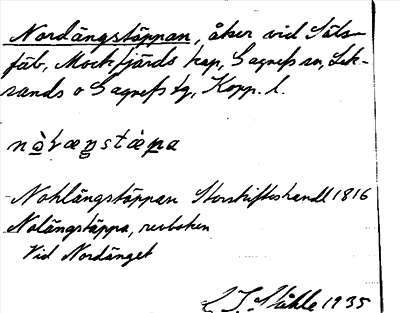 Nordängstäppan, åker vid Säls-
fäb, Mockfjärds kap, Gagnefs sn, Lek-
sands o Gagnefs tg, Kopp. l.
Nohlängstäppan Storskifteshandl 1816
Nolängstäppa, revboken
Vid Nordänget
Ståhle 1935